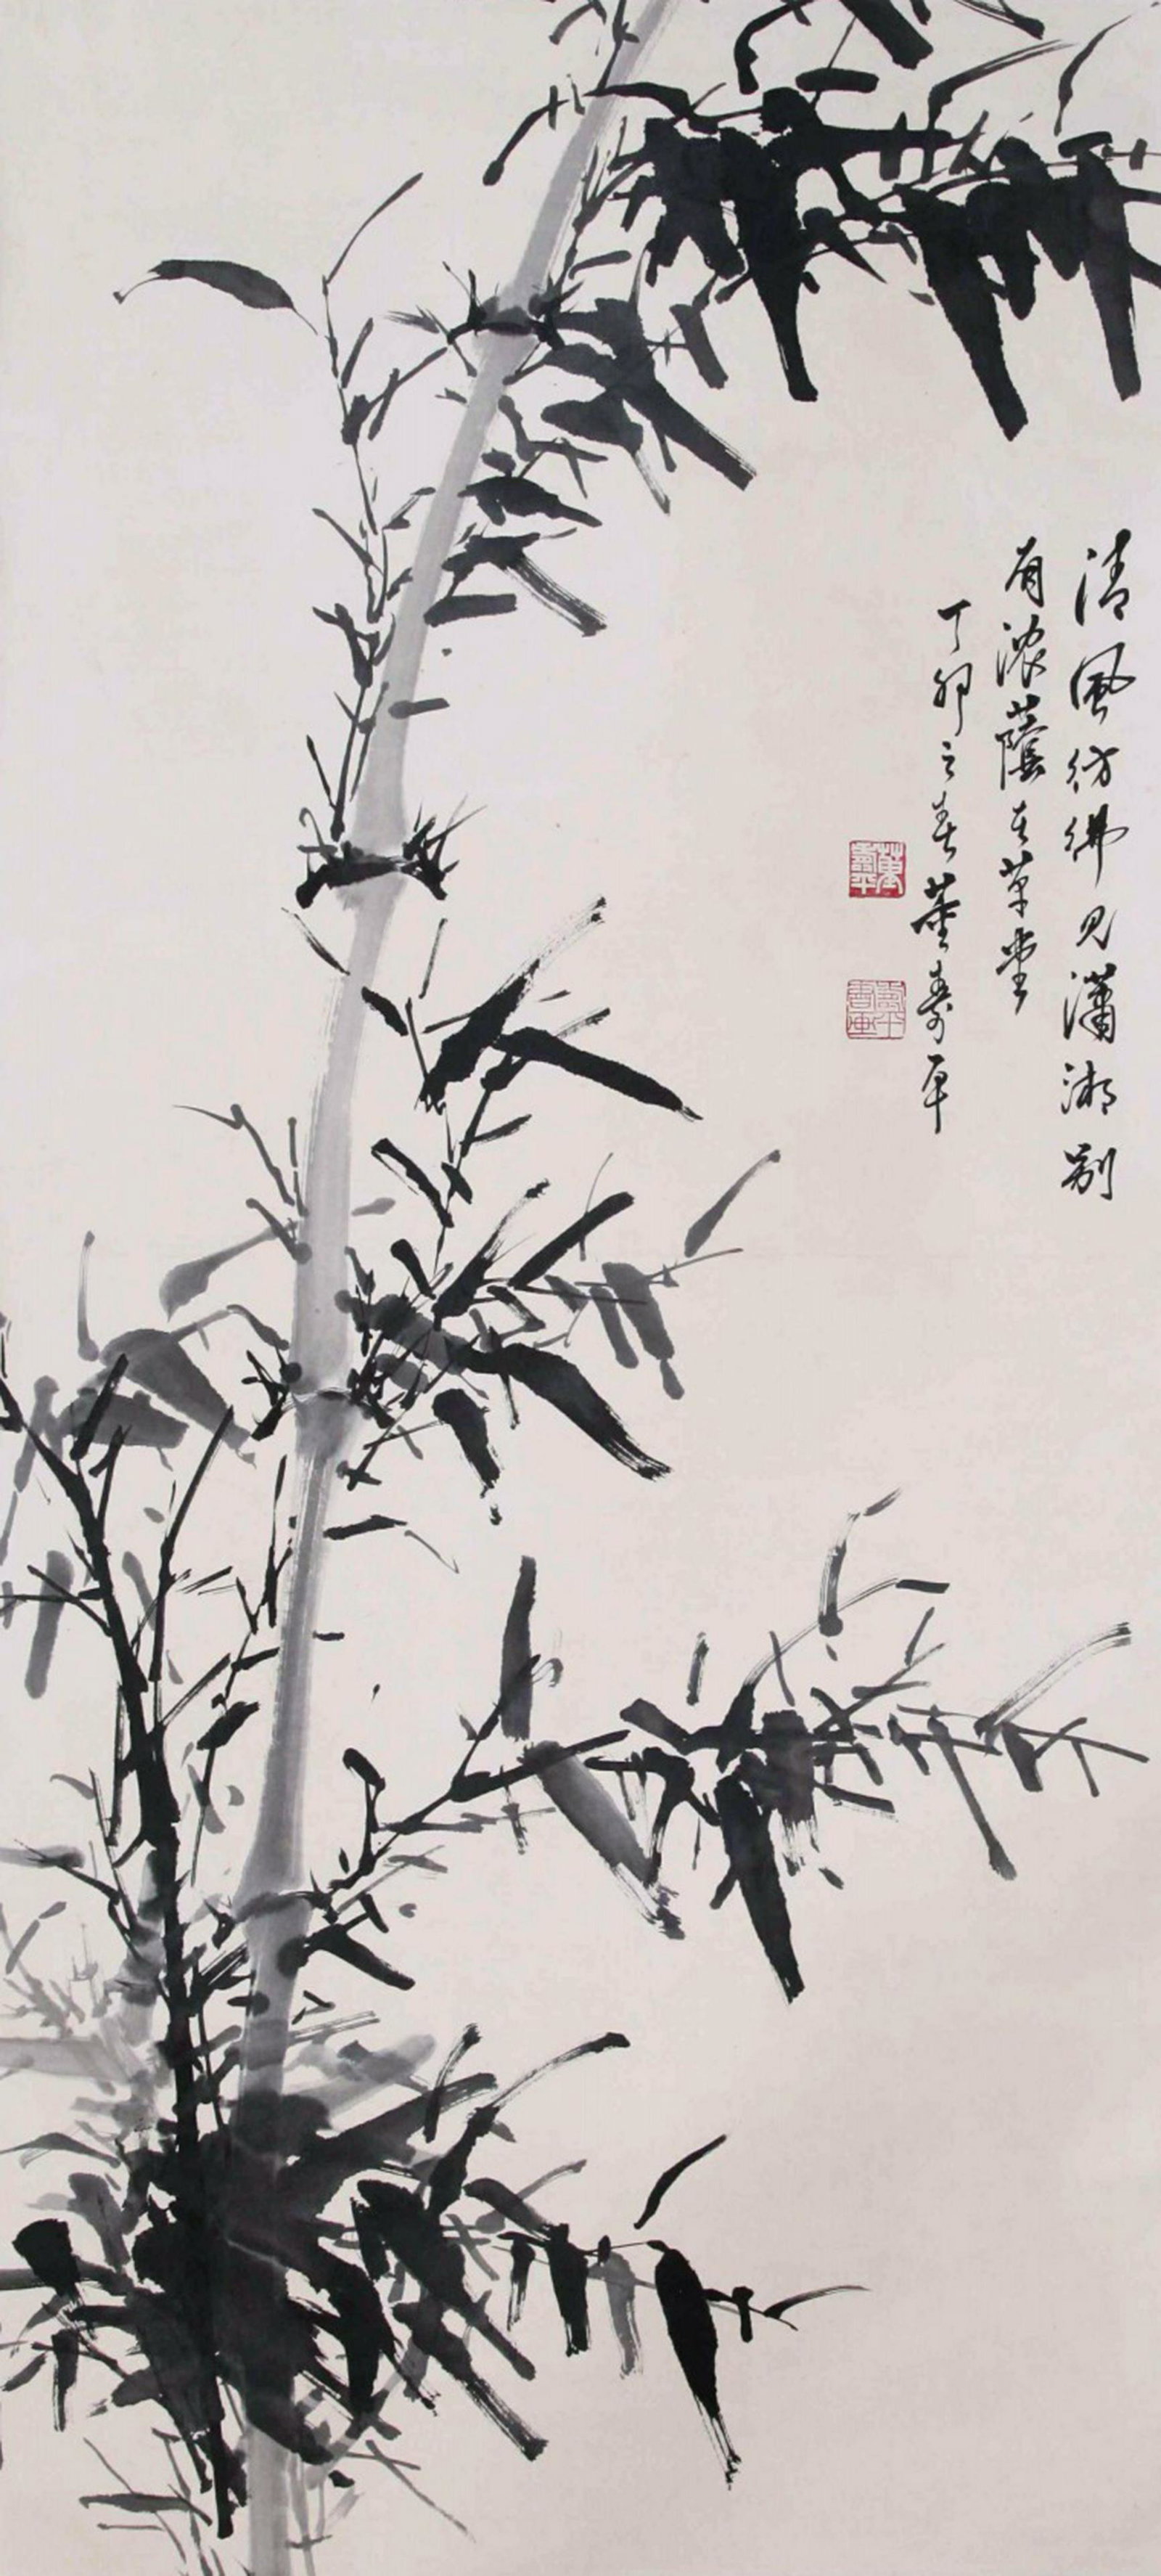 清風彷彿見瀟湖別
有濃蔭在草堂
丁卯之春董壽平
董壽平